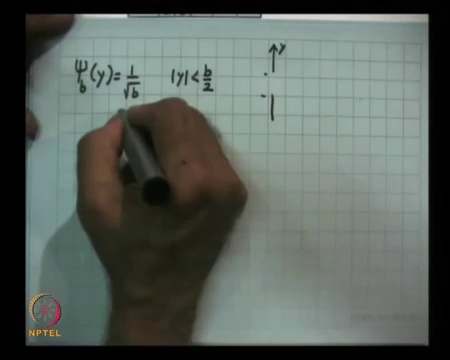 ψ_b(y) = 1/√b |y| < b/2
y
NPTEL